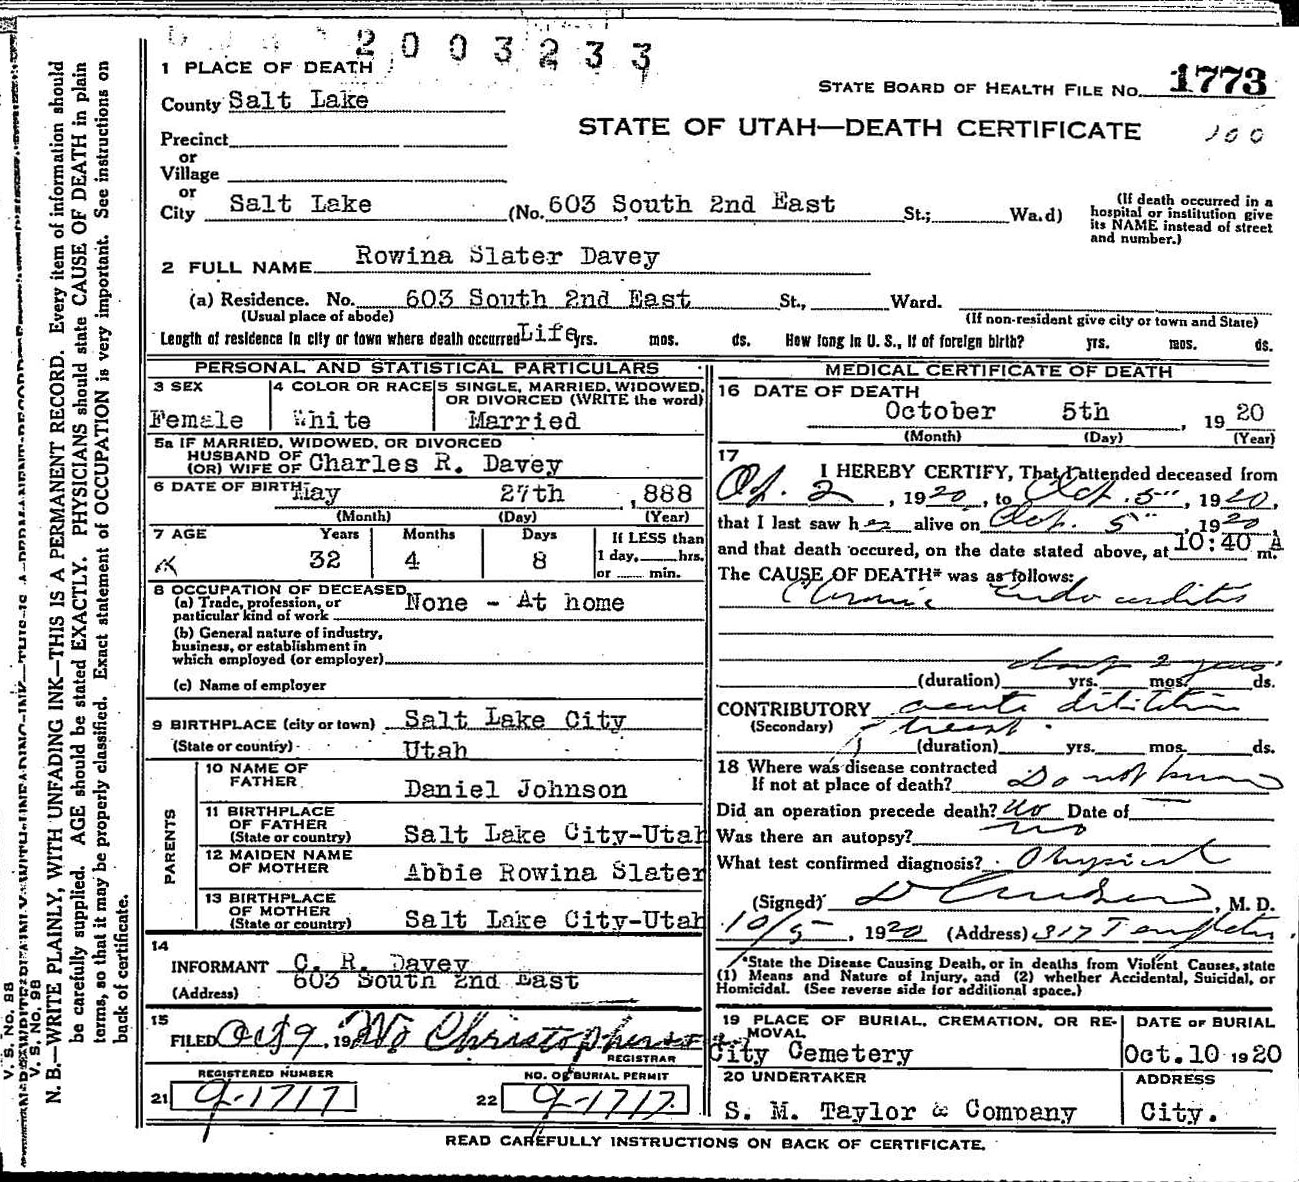 2003233
1 PLACE OF DEATH
STATE BOARD OF HEALTH FILE No. 1773
County Salt Lake
STATE OF UTAH—DEATH CERTIFICATE
100
Precinct
or
Village
or
City Salt Lake (No. 603 South 2nd East St.; Wa.d)
(If death occurred in a
hospital or institution give
its NAME instead of street
and number.)
2 FULL NAME Rowina Slater Davey
(a) Residence. No. 603 South 2nd East St., Ward.
(Usual place of abode)
(If non-resident give city or town and State)
Length of residence in city or town where death occurred Life yrs. mos. ds. How long in U. S., if of foreign birth? yrs. mos. ds.
PERSONAL AND STATISTICAL PARTICULARS
3 SEX
Female
4 COLOR OR RACE
White
5 SINGLE, MARRIED, WIDOWED,
OR DIVORCED (WRITE the word)
Married
5a IF MARRIED, WIDOWED, OR DIVORCED
HUSBAND OF
(OR) WIFE OF Charles R. Davey
6 DATE OF BIRTH May 27th ,888
(Month) (Day) (Year)
7 AGE Years Months Days
32 4 8
If LESS than
1 day, hrs.
or min.
8 OCCUPATION OF DECEASED
(a) Trade, profession, or
particular kind of work None - At home
(b) General nature of industry,
business, or establishment in
which employed (or employer)
(c) Name of employer
9 BIRTHPLACE (city or town) Salt Lake City
(State or country) Utah
PARENTS
10 NAME OF
FATHER Daniel Johnson
11 BIRTHPLACE
OF FATHER
(State or country) Salt Lake City-Utah
12 MAIDEN NAME
OF MOTHER Abbie Rowina Slater
13 BIRTHPLACE
OF MOTHER
(State or country) Salt Lake City-Utah
14
INFORMANT C. R. Davey
(Address) 603 South 2nd East
15
FILED Oct 9, 19
REGISTRAR
REGISTERED NUMBER
21 9-1717
NO. OF BURIAL PERMIT
22 9-1717
MEDICAL CERTIFICATE OF DEATH
16 DATE OF DEATH
October 5th, 1920
(Month) (Day) (Year)
17
I HEREBY CERTIFY, That I attended deceased from
2, 1920, to Oct. 5", 1920,
that I last saw her alive on Oct. 5", 1920,
and that death occured, on the date stated above, at 10:40 A m.
The CAUSE OF DEATH* was as follows:
Chronic Endocarditis
about 2 years
(duration) yrs. mos. ds.
CONTRIBUTORY acute dilitation
(Secondary) heart.
(duration) yrs. mos. ds.
18 Where was disease contracted
If not at place of death? Do not know
Did an operation precede death? No Date of
Was there an autopsy? No
What test confirmed diagnosis? Physical
(Signed) , M. D.
10/5, 1920 (Address) 317
*State the Disease Causing Death, or in deaths from Violent Causes, state
(1) Means and Nature of Injury, and (2) whether Accidental, Suicidal, or
Homicidal. (See reverse side for additional space.)
19 PLACE OF BURIAL, CREMATION, OR RE-
MOVAL
City Cemetery
DATE OF BURIAL
Oct. 10 1920
20 UNDERTAKER
S. M. Taylor & Company
ADDRESS
City.
READ CAREFULLY INSTRUCTIONS ON BACK OF CERTIFICATE.
V. S. No. 98
V. S. No. 98
N. B.—WRITE PLAINLY, WITH UNFADING INK—THIS IS A PERMANENT RECORD. Every item of information should
be carefully supplied. AGE should be stated EXACTLY. PHYSICIANS should state CAUSE OF DEATH in plain
terms, so that it may be properly classified. Exact statement of OCCUPATION is very important. See instructions on
back of certificate.